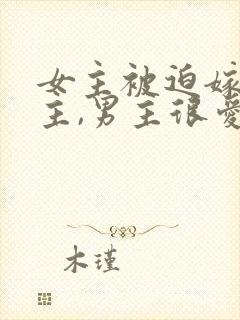 女主被迫嫁
主,男主很爱
木瑾